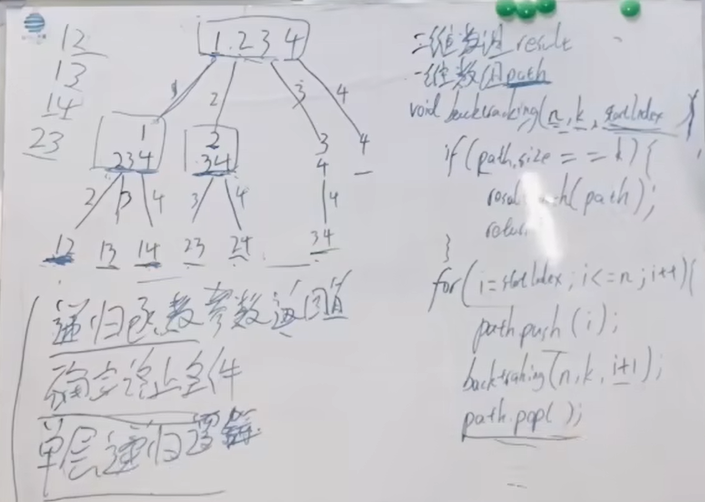 12
13
14
23
1 2 3 4
1 2 3 4
1 2 3 4
234 34 4
2 3 4 3 4 4
12 13 14 23 24 34
递归函数参数返回值
确定终止条件
单层递归逻辑
二维数组 result
一维数组 path
void backtracking(n, k, startIndex){
if(path.size == k){
result.push(path);
return
}
for(i=startIndex; i<=n; i++){
path.push(i);
backtraking(n, k, i+1);
path.pop();